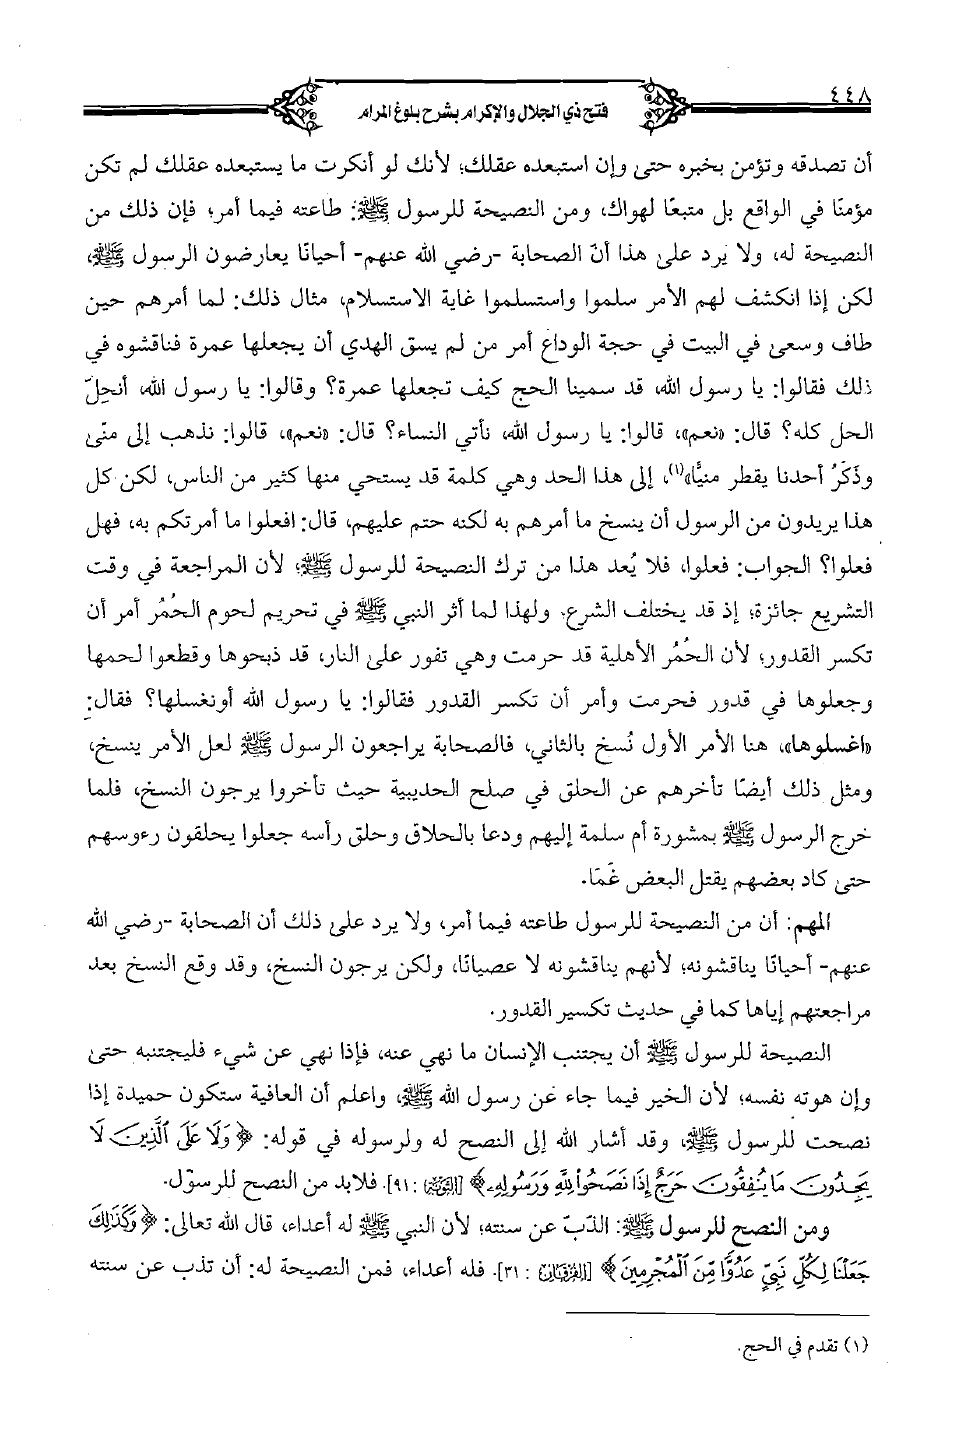 ٤٤٨
فتح ذي الجلال والإكرام بشرح بلوغ المرام
أن تصدقه وتؤمن بخبره حتى وإن استبعده عقلك؛ لأنك لو أنكرت ما يستبعده عقلك لم تكن
مؤمنًا في الواقع بل متبعًا لهواك، ومن النصيحة للرسول ﷺ: طاعته فيما أمر؛ فإن ذلك من
النصيحة له، ولا يرد على هذا أنّ الصحابة -رضي الله عنهم- أحيانًا يعارضون الرسول ﷺ،
لكن إذا انكشف لهم الأمر سلموا واستسلموا غاية الاستسلام، مثال ذلك: لما أمرهم حين
طاف وسعى في البيت في حجة الوداع أمر من لم يسق الهدي أن يجعلها عمرة فناقشوه في
ذلك فقالوا: يا رسول الله، قد سمينا الحج كيف تجعلها عمرة؟ وقالوا: يا رسول الله، أنحِلّ
الحل كله؟ قال: «نعم»، قالوا: يا رسول الله، نأتي النساء؟ قال: «نعم»، قالوا: نذهب إلى منّى
وذَكَرُ أحدنا يقطر منيًّا»(١)، إلى هذا الحد وهي كلمة قد يستحي منها كثير من الناس، لكن كل
هذا يريدون من الرسول أن ينسخ ما أمرهم به لكنه حتم عليهم، قال: افعلوا ما أمرتكم به، فهل
فعلوا؟ الجواب: فعلوا، فلا يُعد هذا من ترك النصيحة للرسول ﷺ؛ لأن المراجعة في وقت
التشريع جائزة؛ إذ قد يختلف الشرع. ولهذا لما أثر النبي ﷺ في تحريم لحوم الحُمُر أمر أن
تكسر القدور؛ لأن الحُمُر الأهلية قد حرمت وهي تفور على النار، قد ذبحوها وقطعوا لحمها
وجعلوها في قدور فحرمت وأمر أن تكسر القدور فقالوا: يا رسول الله أونغسلها؟ فقال:
«اغسلوها»، هنا الأمر الأول نُسخ بالثاني، فالصحابة يراجعون الرسول ﷺ لعل الأمر ينسخ،
ومثل ذلك أيضًا تأخرهم عن الحلق في صلح الحديبية حيث تأخروا يرجون النسخ، فلما
خرج الرسول ﷺ بمشورة أم سلمة إليهم ودعا بالحلاق وحلق رأسه جعلوا يحلقون رءوسهم
حتى كاد بعضهم يقتل البعض غَمًا.
المهم: أن من النصيحة للرسول طاعته فيما أمر، ولا يرد على ذلك أن الصحابة -رضي الله
عنهم- أحيانًا يناقشونه؛ لأنهم يناقشونه لا عصيانًا، ولكن يرجون النسخ، وقد وقع النسخ بعد
مراجعتهم إياها كما في حديث تكسير القدور.
النصيحة للرسول ﷺ أن يجتنب الإنسان ما نهي عنه، فإذا نهي عن شيء فليجتنبه حتى
وإن هوته نفسه؛ لأن الخير فيما جاء عن رسول الله ﷺ، واعلم أن العافية ستكون حميدة إذا
نصحت للرسول ﷺ، وقد أشار الله إلى النصح له ولرسوله في قوله: ﴿وَلَا عَلَى ٱلَّذِينَ لَا
يَجِدُونَ مَا يُنفِقُونَ حَرَجٌ إِذَا نَصَحُوا۟ لِلَّهِ وَرَسُولِهِۦ﴾ [التوبة: ٩١]. فلابد من النصح للرسول.
ومن النصح للرسول ﷺ: الذبّ عن سنته؛ لأن النبي ﷺ له أعداء، قال الله تعالى: ﴿وَكَذَٰلِكَ
جَعَلْنَا لِكُلِّ نَبِىٍّ عَدُوًّا مِّنَ ٱلْمُجْرِمِينَ﴾ [الفرقان: ٣١]. فله أعداء، فمن النصيحة له: أن تذب عن سنته
(١) تقدم في الحج.